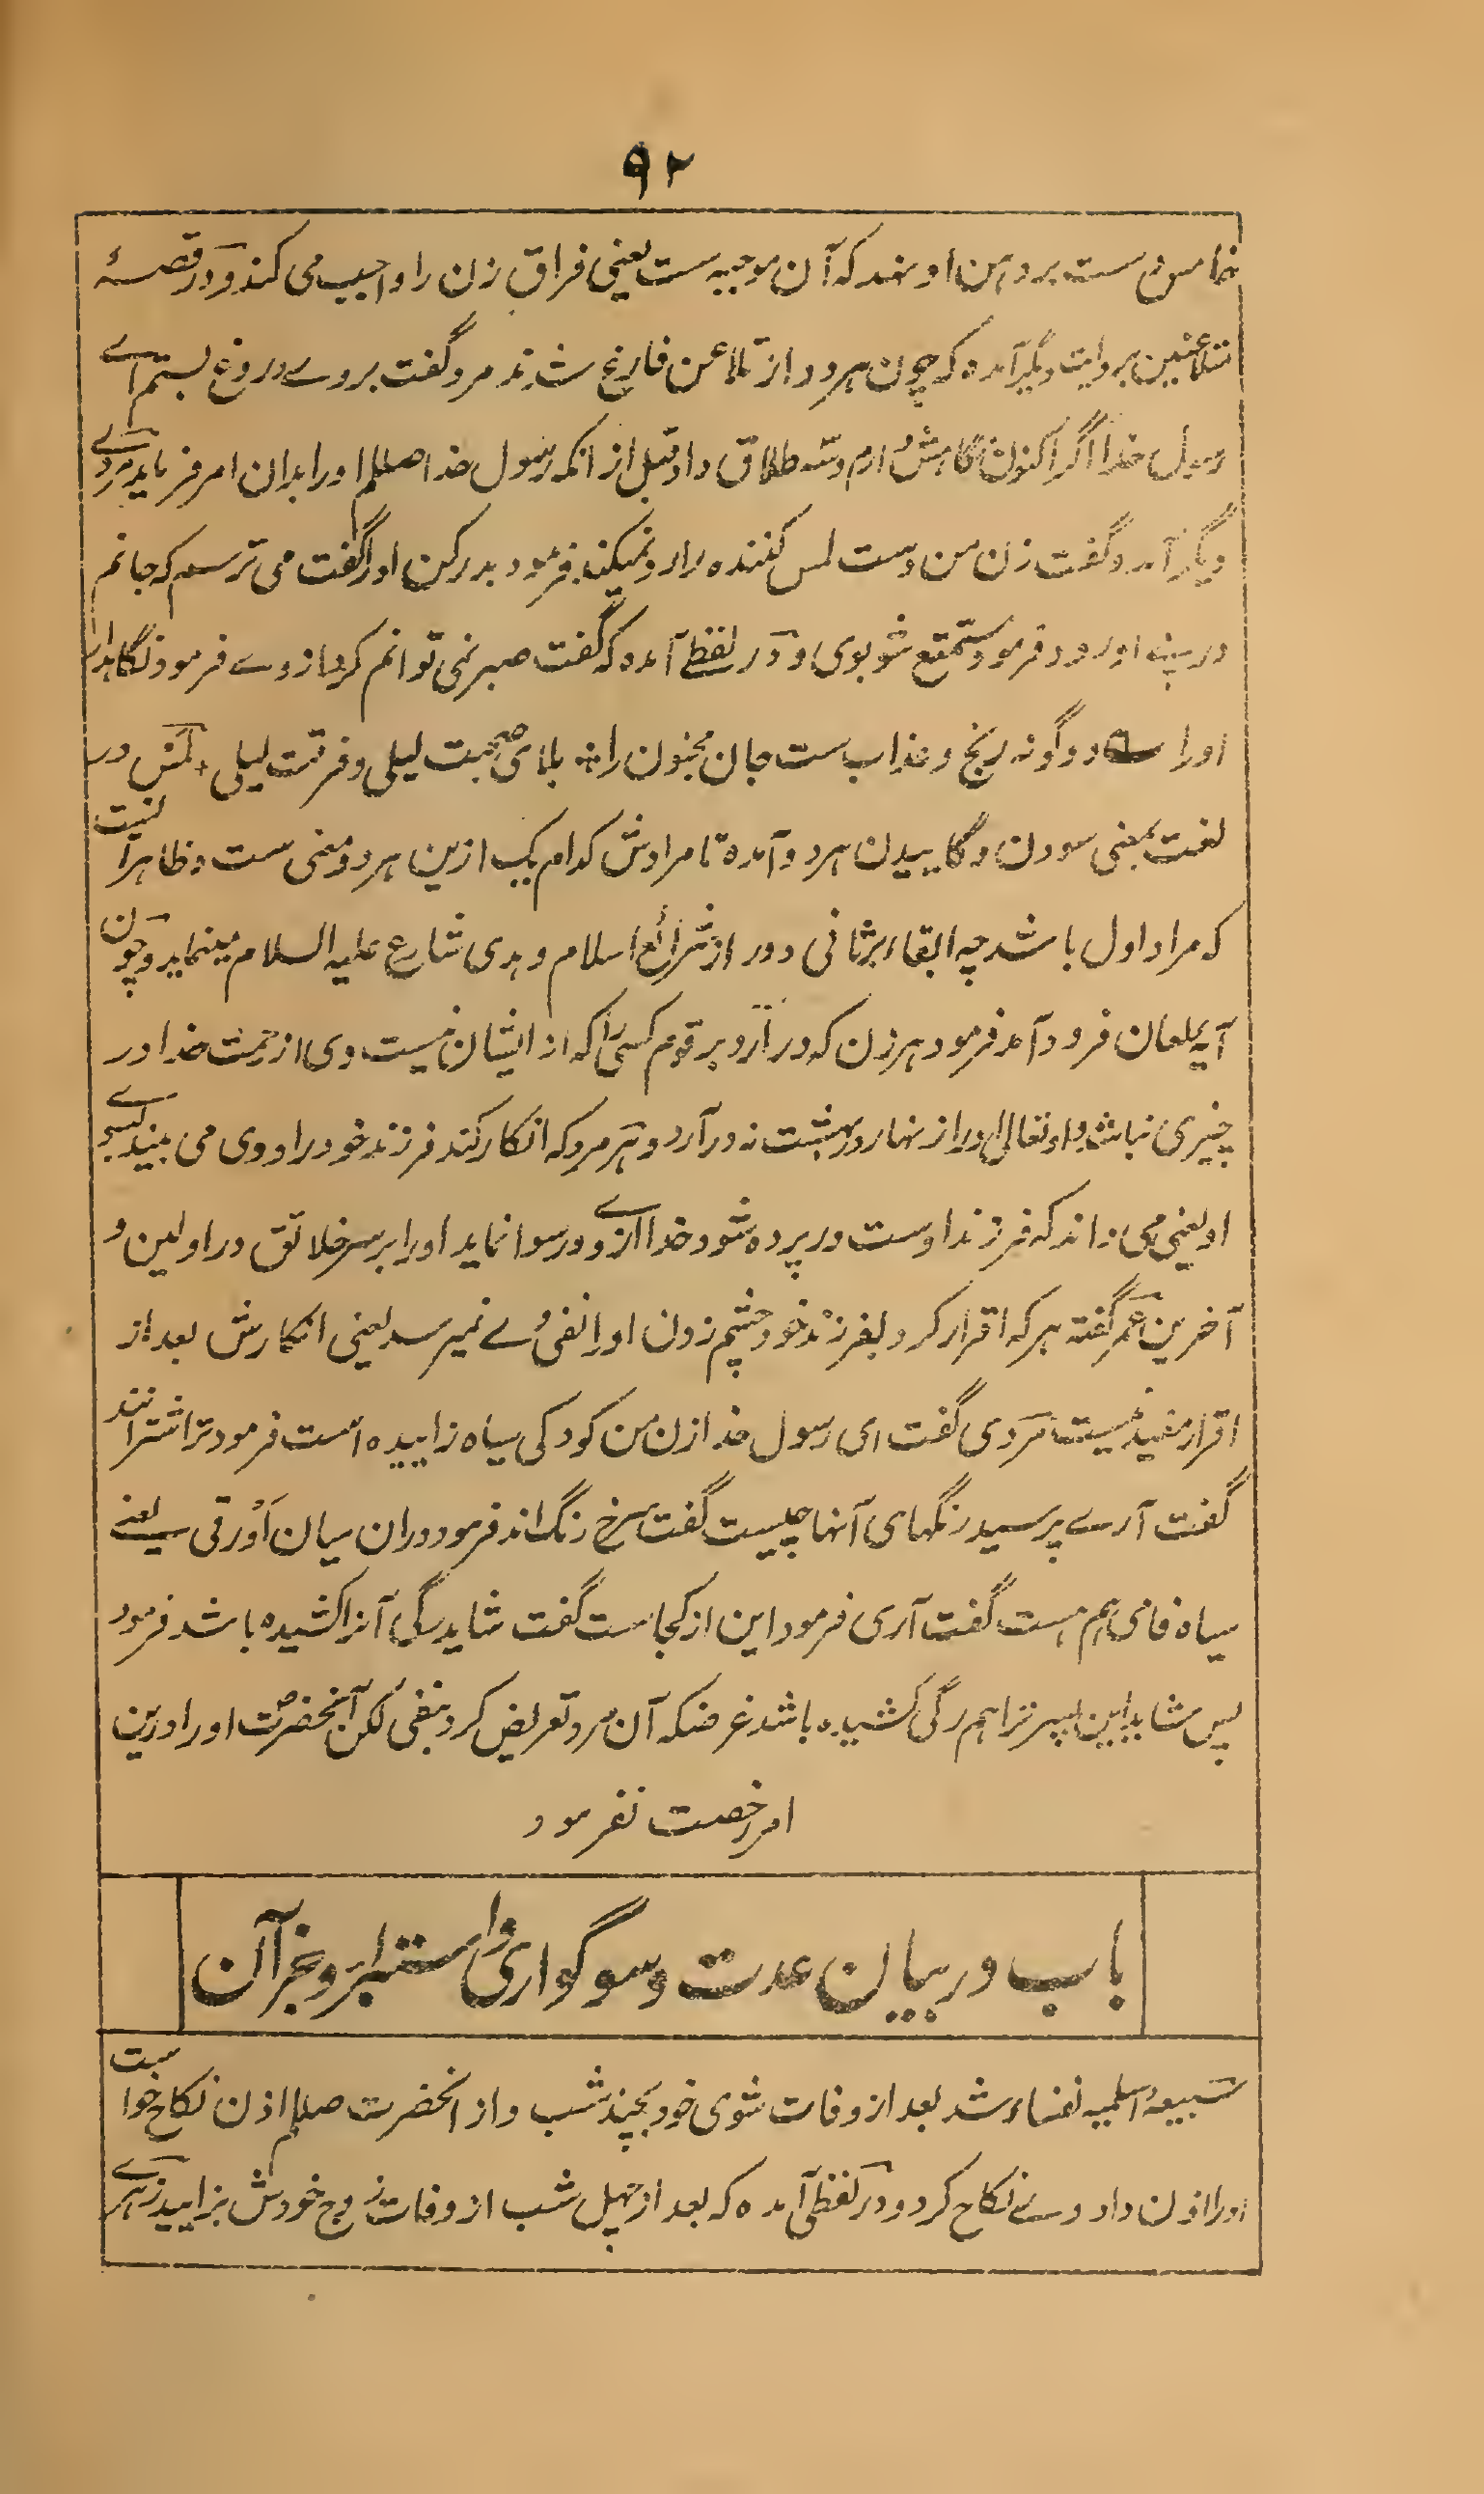 ۹۲
خامس دست بر دهن او نهد که آن موجبه ست یعنی فراق زن را واجب می کند و در قصهٔ
متلاعنین بروایت دیگر آمده که چون هر دو از تلاعن فارغ شدند مرد گفت بر وے دروغ بستم اے
رسول خدا اگر اکنون نگاهش دارم و سه طلاق داد قبل از انکه رسول خدا صللم او را بدان امر فرماید مردے
دیگر آمد و گفت زن من دست لمس کننده را رد نمیکند فرمود بدر کن او را گفت می ترسم که جانم
در پے او رود فرمود متمتع شو بوی و در لفظے آمده که گفت صبر نمی توانم کرد از وے فرمود نگاهدار
او را ے دو گونه رنج و عذاب ست جان مجنون را * بلای صحبت لیلی و فرقت لیلی + لمس در
لغت بمعنی سودن و گاییدن هر دو آمده تا مرادش کدام یک ازین هر دو معنی ست و ظاهر آنست
که مراد اول باشد چه ابقاء بر ثانی دور از شرائع اسلام و هدی شارع علیه السلام مینماید و چون
آیه لعان فرود آمد فرمود هر زن که در آرد بر قوم کسی را که از ایشان نیست وی از رحمت خدا در
چیزی نباشد و او تعالی او را زنهار در بهشت نه درآرد و هر مرد که انکار کند فرزند خود را و وی می بیند بسوے
او یعنی می داند که فرزند اوست در پرده شود خدا ازوے و رسوا نماید او را بر سر خلائق در اولین و
آخرین عمر گفته هر که اقرار کرد بفرزند خود چشم زدن او را نفی وے نمیرسد یعنی انکارش بعد از
اقرار مفید نیست مردی گفت ای رسول خدا زن من کودکی سیاه زاییده است فرمود ترا شترانند
گفت آرے پرسید رنگهای آنها چیست گفت سرخ رنگ اند فرمود دران میان اَورقی ست یعنے
سیاه فامی هم هست گفت آری فرمود این از کجاست گفت شاید رگی آنرا کشیده باشد فرمود
پس شاید این پسر ترا هم رگی کشیده باشد غرضکه آن مرد تعریض کرد بنفی لکن آنحضرت او را درین
امر رخصت نفرمود
باب در بیان عدت و سوگواری و استبراء و جز آن
سبیعه اسلمیه نفساء شد بعد از وفات شوی خود بچند شب و از انحضرت صللم اذن نکاح خواست
او را اذن داد وے نکاح کرد و در لفظی آمده که بعد از چهل شب از وفات زوج خودش بزایید زهرے